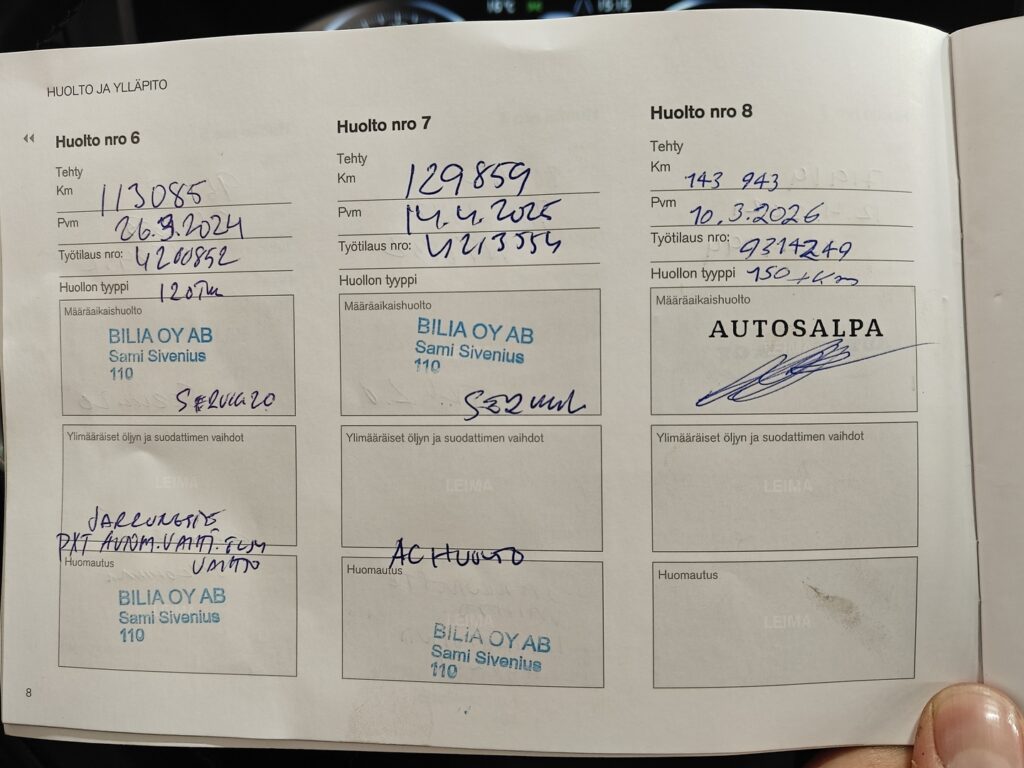 HUOLTO JA YLLÄPITO
Huolto nro 6
Tehty
Km 113085
Pvm 26.9.2024
Työtilaus nro: 4200852
Huollon tyyppi 120TKM
Määräaikaishuolto
BILIA OY AB
Sami Sivenius
110
Ylimääräiset öljyn ja suodattimen vaihdot
LEIMA
JARRUNESTE
AUTOM.VAIHT.
VAIHTO
Huomautus
BILIA OY AB
Sami Sivenius
110
8
Huolto nro 7
Tehty
Km 129859
Pvm 14.4.2025
Työtilaus nro: 4213554
Huollon tyyppi
Määräaikaishuolto
BILIA OY AB
Sami Sivenius
110
Ylimääräiset öljyn ja suodattimen vaihdot
LEIMA
AC HUOLTO
Huomautus
BILIA OY AB
Sami Sivenius
110
Huolto nro 8
Tehty
Km 143 943
Pvm 10.3.2026
Työtilaus nro: 9314249
Huollon tyyppi 150 tkm
Määräaikaishuolto
AUTOSALPA
Ylimääräiset öljyn ja suodattimen vaihdot
LEIMA
Huomautus
LEIMA